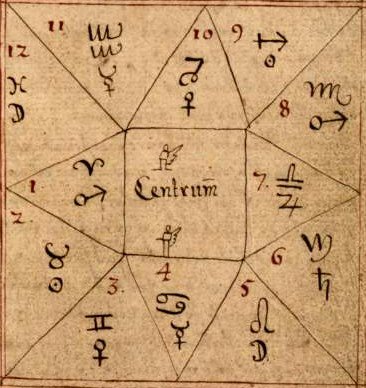 11 ♒ ☿
10 ♑ ♀
9 ♐ ☉
12 ♓ ☽
8 ♏ ♂
1 ♈ ♂
Centrum̄
7. ♎ ♃
2. ♉ ☉
6 ♍ ♄
3. ♊ ♀
4 ♋ ☿
5 ♌ ☽